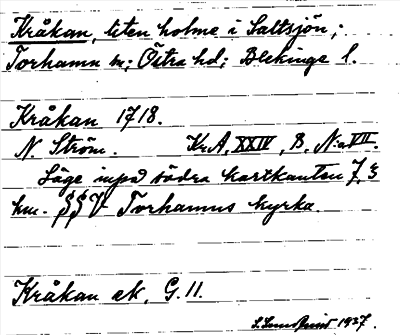 Kråkan, liten holme i Saltsjön;
Torhamn sn; Östra hd; Blekinge l.
Kråkan 1718.
N. Ström. Kr.A, XXIV, B, N:o VII.
Läge invid södra kartkanten 7,3
km. SSV Torhamns kyrka.
Kråkan ek. G. 11.
1927.